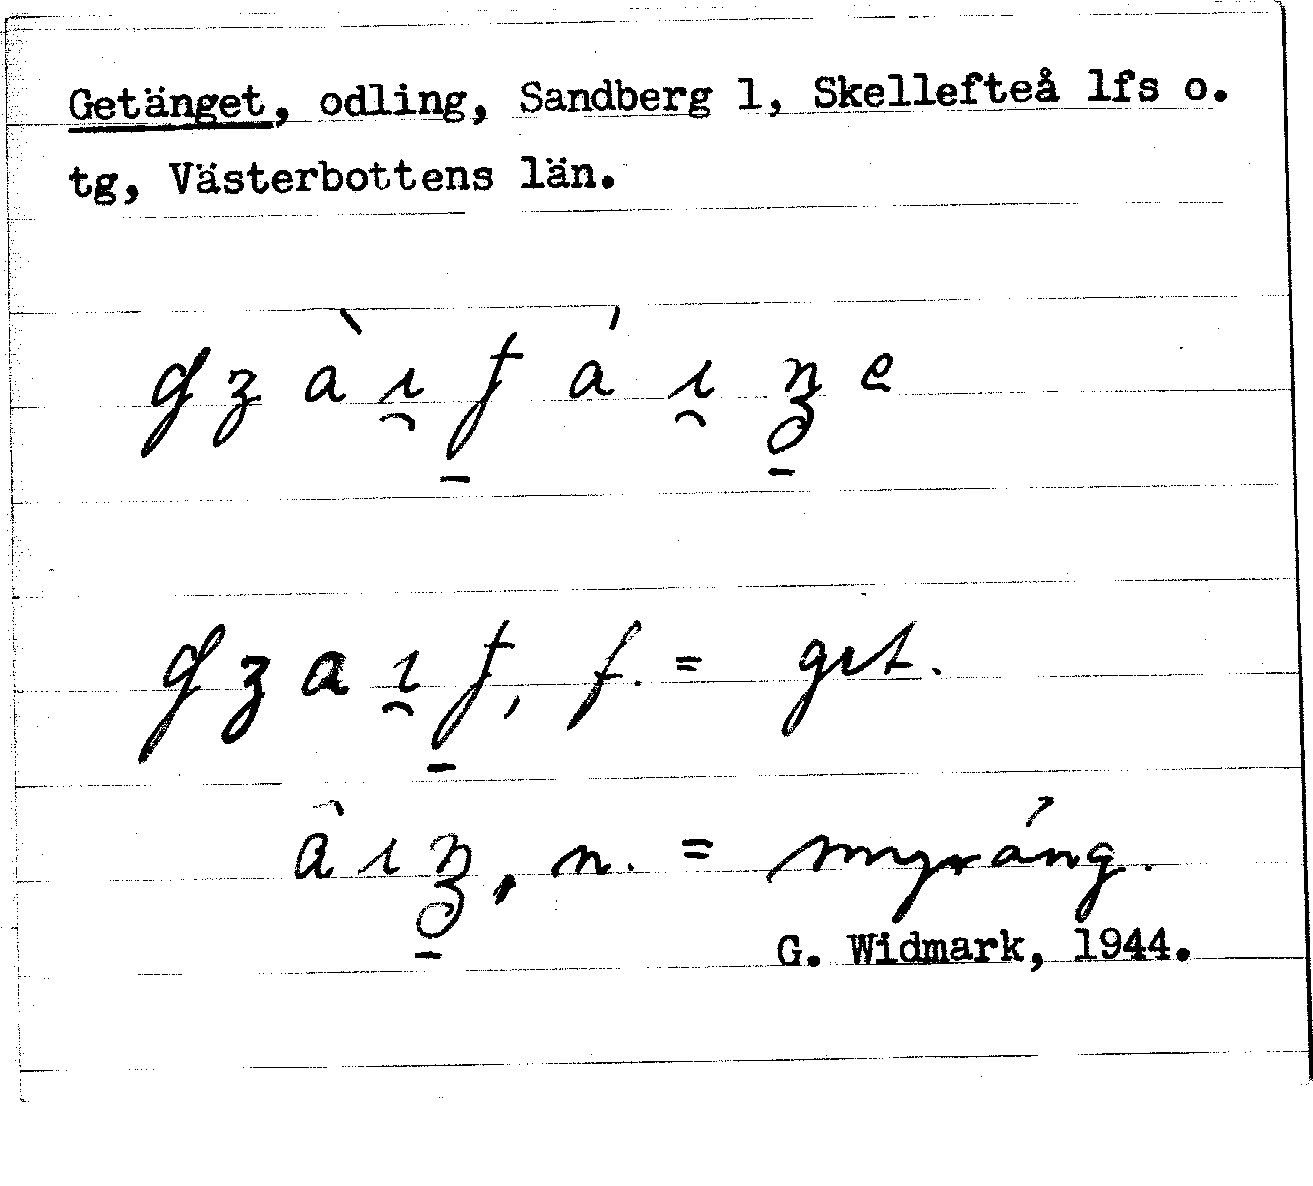 Getänget, odling, Sandberg 1, Skellefteå lfs o.
tg, Västerbottens län.
f. = get.
n. = myräng.
G. Widmark, 1944.